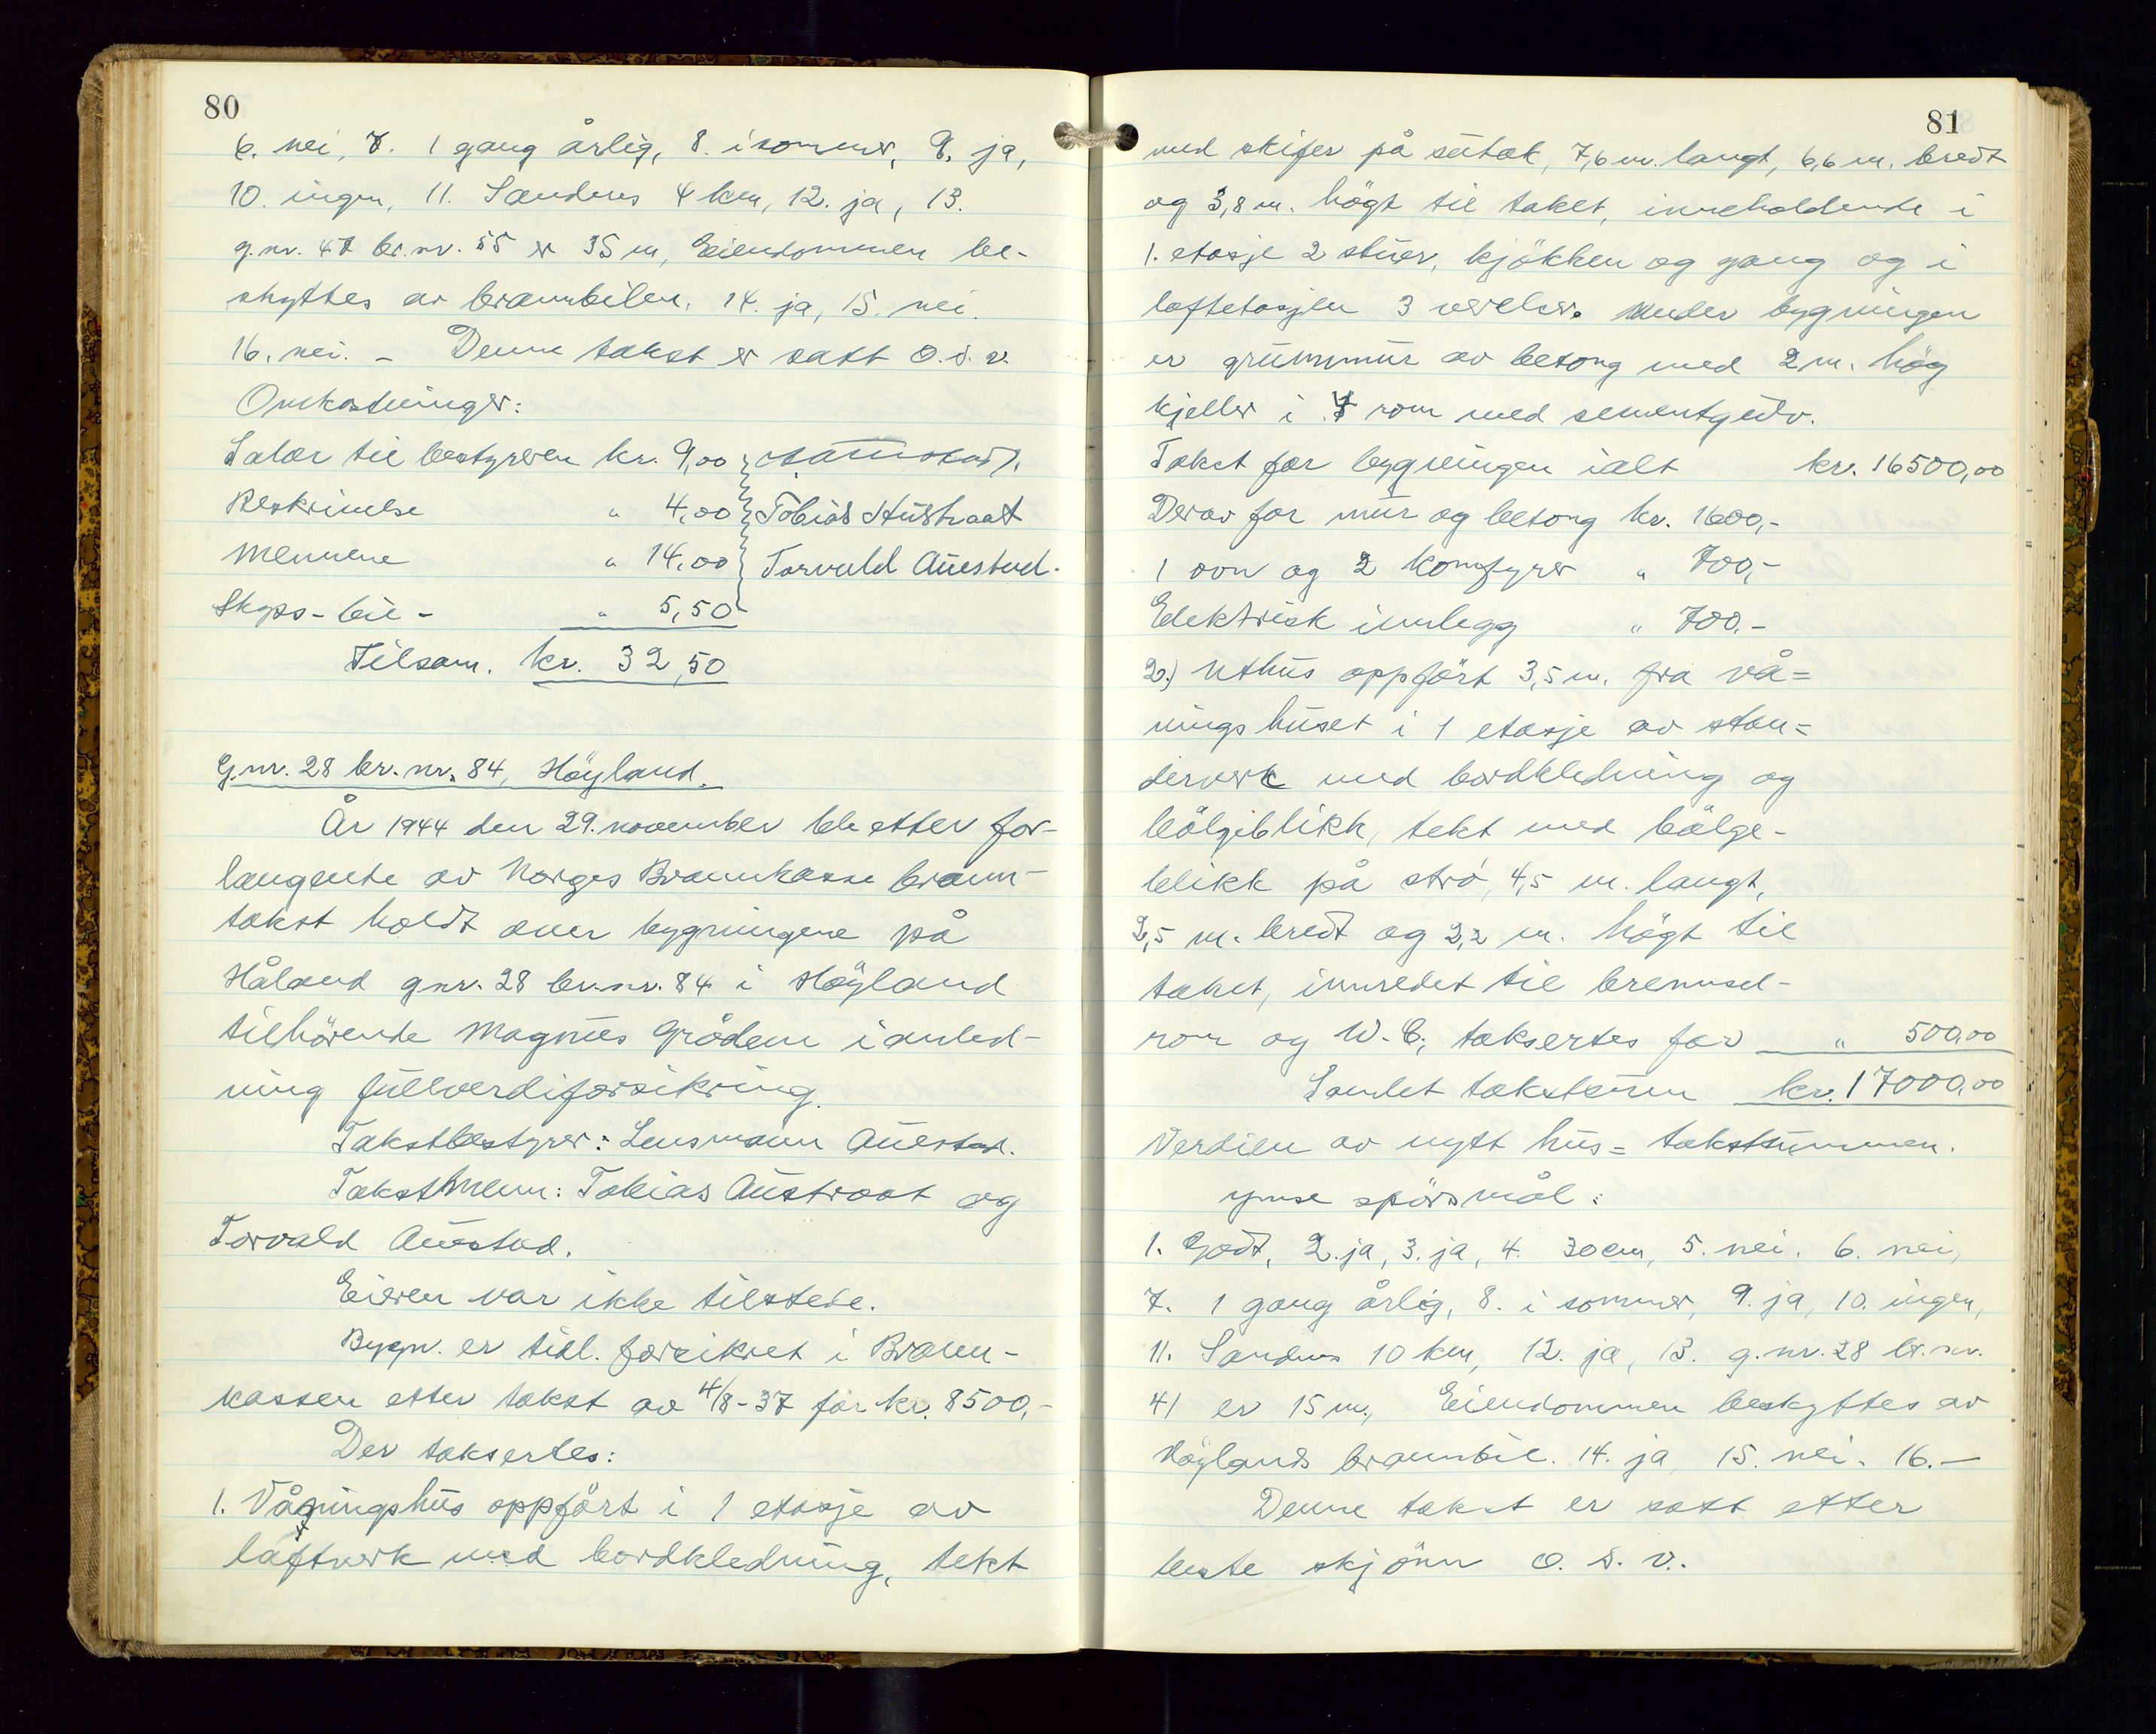 80
6. nei, 7. 1 gang årlig, 8. i sommer, 9. ja,
10. ingen, 11. Sandnes 4 km, 12. ja, 13.
g.nr. 47 br.nr. 55 er 35 m, Eiendommen be-
skyttes av brannbilen. 14. ja, 15. nei.
16. nei. - Denne takst er satt o.s.v.
Omkostninger:
Salær til bestyreren kr. 9,00
Beskrivelse " 4,00 Tobias Austraat
Mennene " 14,00 Torvald Auestad.
Skyss-bil- " 5,50
Tilsam. kr. 32,50
G.nr. 28 br.nr. 84, Höyland.
År 1944 den 29. november ble etter for-
langende av Norges Brannkasse brann-
takst holdt over bygningene på
Håland gnr. 28 br.nr. 84 i Höyland
tilhörende Magnus Grådem i anled-
ning fullverdiforsikring.
Takstbestyrer: Lensmann Auestad.
Takstmenn: Tobias Austraat og
Torvald Auestad.
Eieren var ikke tilstede.
Bygn. er tidl. forsikret i Brann-
kassen etter takst av 4/8-37 for kr. 8500,-
Der taksertes:
1. Våningshus oppfört i 1 etasje av
laftverk med bordkledning, tekt
81
med skifer på sutak, 7,6 m. langt, 6,6 m. bredt
og 3,8 m. högt til taket, inneholdende i
1. etasje 2 stuer, kjökken og gang og i
loftetasjen 3 verelser. Under bygningen
er grunnmur av betong med 2 m. hög
kjeller i 4 rom med sementgulv.
Takst for bygningen ialt kr. 16500,00
Derav for mur og betong kr. 1600,-
1 ovn og 2 komfyrer " 700,-
Elektrisk innlegg " 700.-
2.) Uthus oppfört 3,5 m. fra vå=
ningshuset i 1 etasje av sten=
derverk med bordkledning og
bölgeblikk, tekt med bölge-
blikk på stro, 4,5 m. langt,
2,5 m. bredt og 2,2 m. högt til
taket, innredet til brennsel-
rom og W.C; taksertes for " 500,00
Samlet takstsum kr. 17000,00
Verdien av nytt hus = takstsummen.
Ymse spörsmål:
1. Godt, 2. ja, 3. ja, 4. 30 cm, 5. nei. 6. nei,
7. 1 gang årlig, 8. i sommer, 9. ja, 10. ingen,
11. Sandnes 10 km, 12. ja, 13. g.nr. 28 br.nr.
41 er 15 m., Eiendommen beskyttes av
Höylands brannbil. 14. ja, 15. nei. 16. -
Denne takst er satt etter
beste skjönn o.s.v..